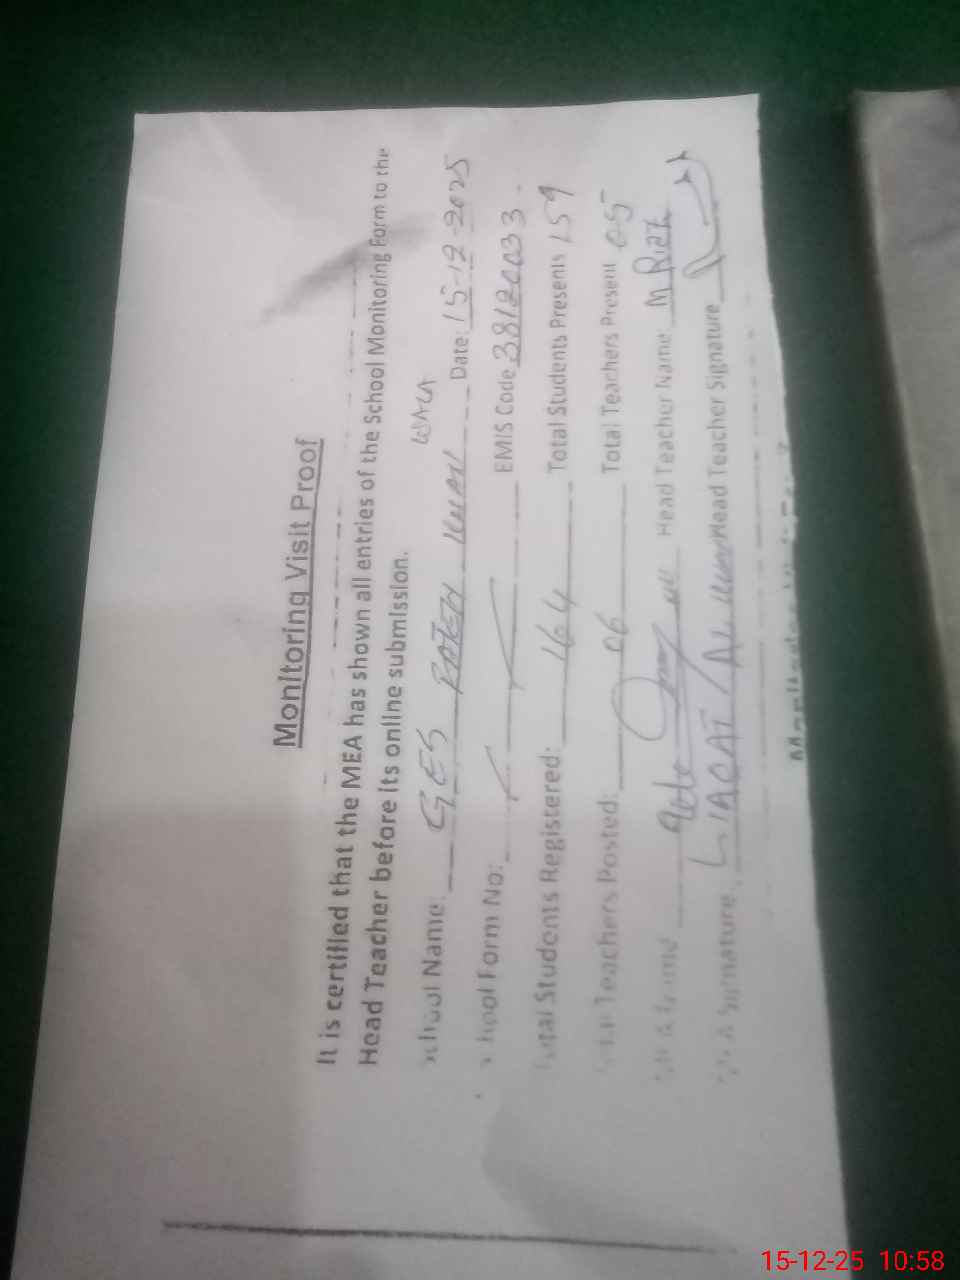 Monitoring Visit Proof
It is certified that the MEA has shown all entries of the School Monitoring Form to the
Head Teacher before its online submission.
School Name: GES RATEH KHAN WALA Date: 15-12-2025
School Form No: EMIS Code 38120033
Total Students Registered: 164 Total Students Presents 159
Total Teachers Posted: 06 Total Teachers Present 05
MEA Name Head Teacher Name: M Riaz
MEA Signature: LIAQAT ALI Head Teacher Signature
15-12-25 10:58